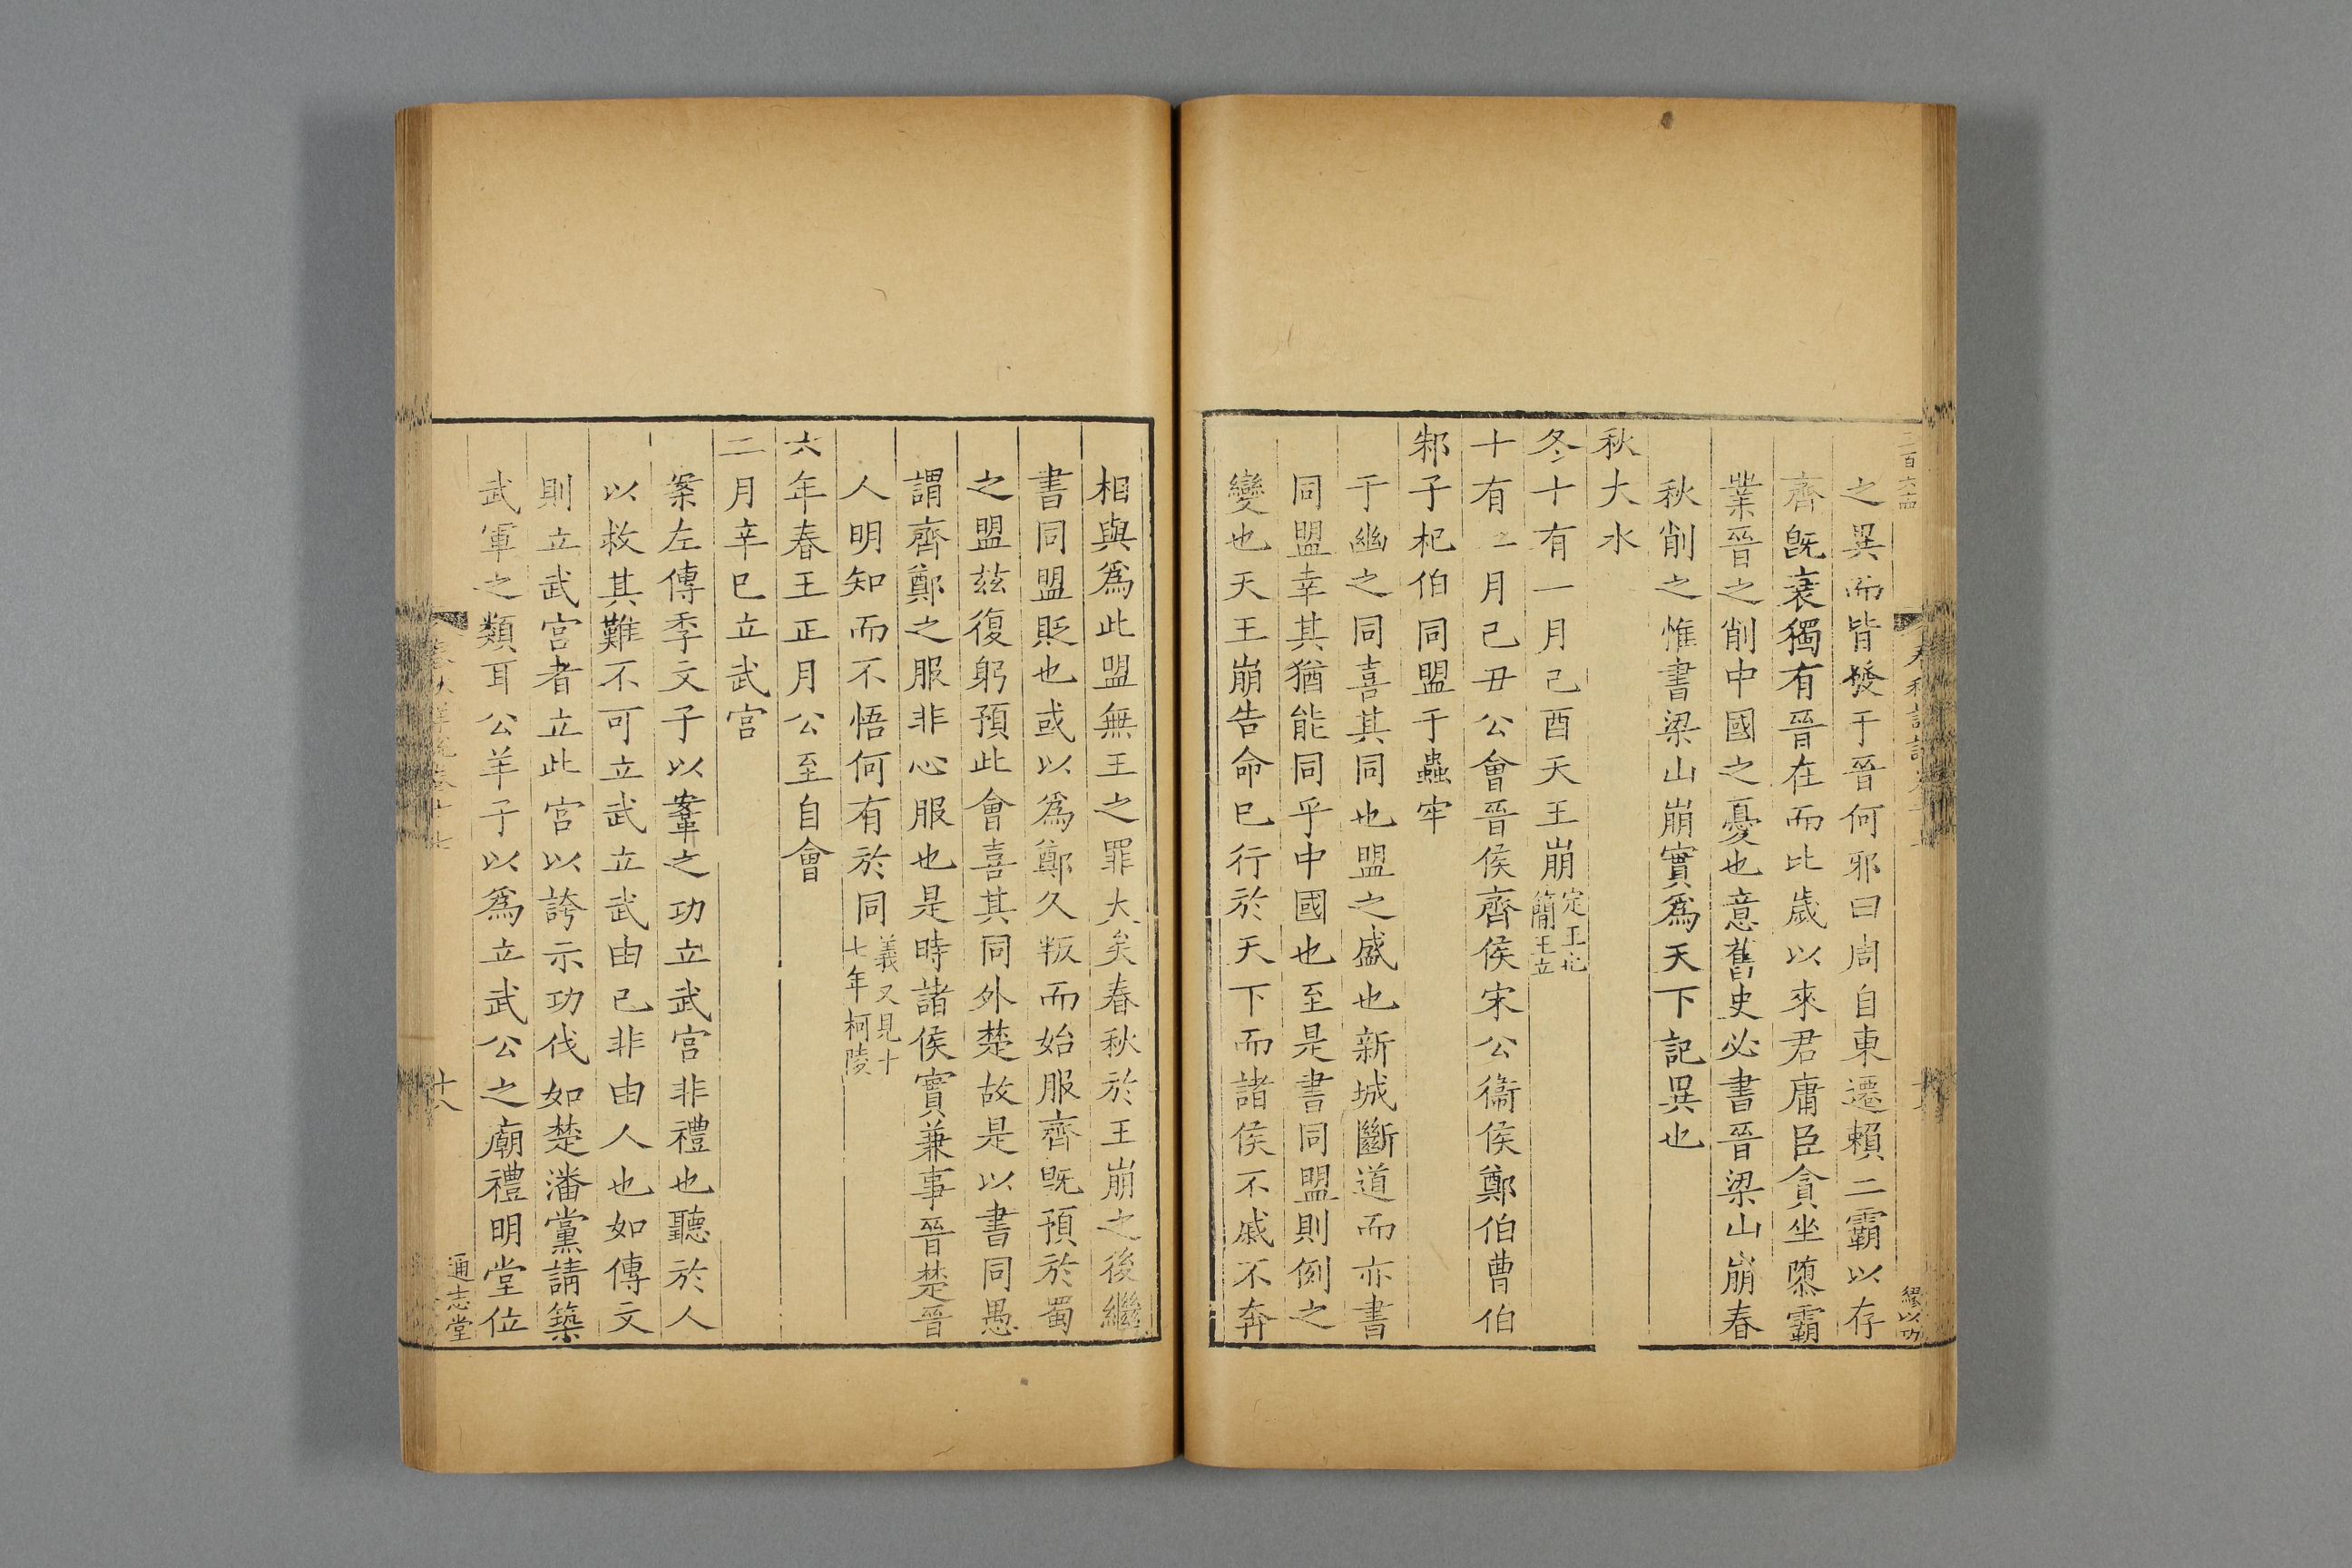 之異而皆發于晉何邪曰周自東遷賴二霸以存
齊旣衰獨有晉在而比歲以來君庸臣貪坐隳霸
業晉之削中國之憂也意舊史必書晉梁山崩春
秋削之惟書梁山崩實爲天下記異也
秋大水
冬十有一月己酉天王崩定王也簡王立
十有二月己丑公會晉侯齊侯宋公衞侯鄭伯曹伯
邾子杞伯同盟于蟲牢
于幽之同喜其同也盟之盛也新城斷道而亦書
同盟幸其猶能同乎中國也至是書同盟則例之
變也天王崩告命巳行於天下而諸侯不戚不奔
相與爲此盟無王之罪大矣春秋於王崩之後繼
書同盟貶也或以爲鄭久叛而始服齊旣預於蜀
之盟茲復躬預此會喜其同外楚故是以書同愚
謂齊鄭之服非心服也是時諸侯實兼事晉楚晉
人明知而不悟何有於同義又見十七年柯陵
六年春王正月公至自會
二月辛巳立武宮
案左傳季文子以鞌之功立武宮非禮也聽於人
以救其難不可立武立武由己非由人也如傳文
則立武宮者立此宮以誇示功伐如楚潘黨請築
武軍之類耳公羊子以爲立武公之廟禮明堂位
十八
通志堂